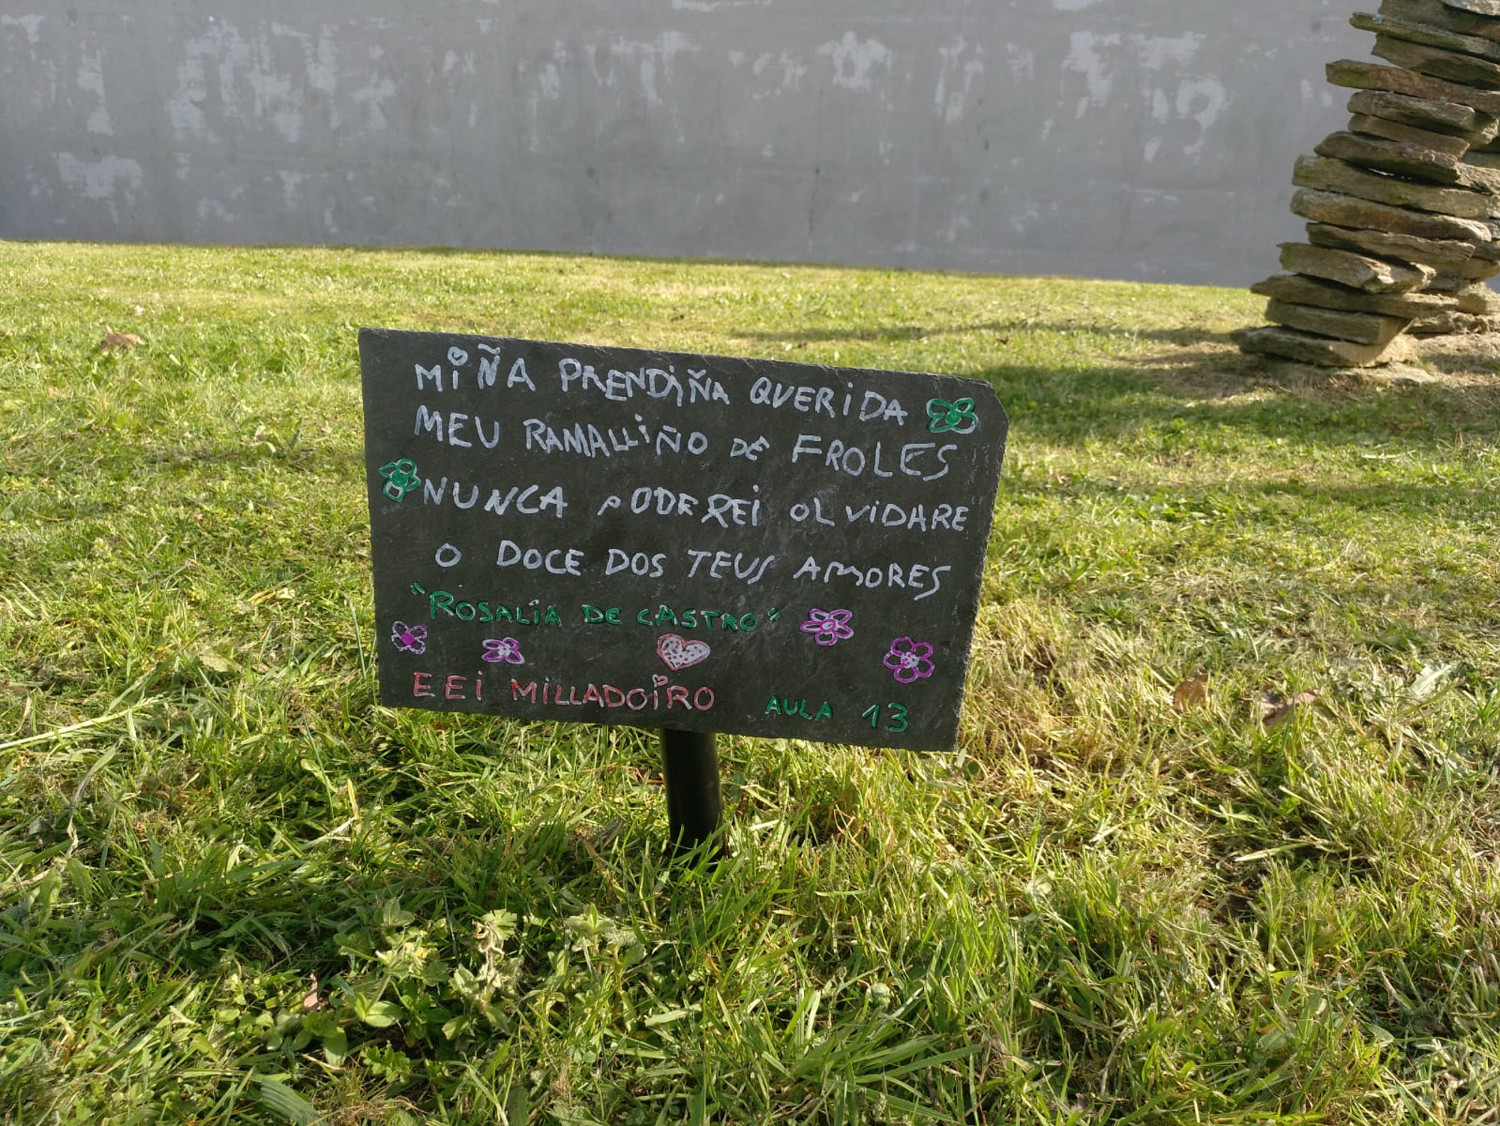 MIÑA PRENDIÑA QUERIDA
MEU RAMALLIÑO DE FROLES
NUNCA PODEREI OLVIDARE
O DOCE DOS TEUS AMORES
"ROSALIA DE CASTRO"
EEI MILLADOIRO AULA 13